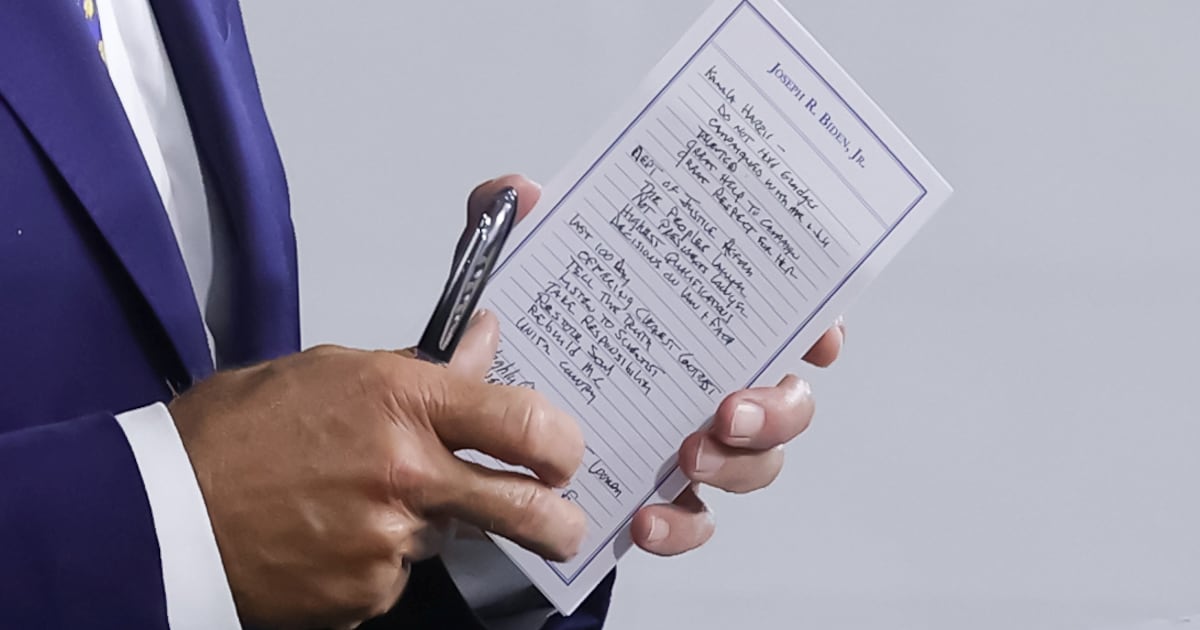 JOSEPH R. BIDEN, JR.
Kamala HARRIS -
DO NOT HOLD GRUDGES
CAMPAIGNED WITH ME & JILL
TALENTED
GREAT HELP TO CAMPAIGN
GREAT RESPECT FOR HER
DEPT OF JUSTICE REFORM
THE PEOPLES LAWYER
NOT PRESIDENTS LAWYER
HIGHEST QUALIFICATIONS
DECISIONS ON LAW & FACT
LAST 100 DAY
OFFERING CLEAREST CONTRAST
TELL THE TRUTH
LISTEN TO SCIENTIST
TAKE RESPONSIBILITY
RESTORE SOUL
REBUILD M.C
UNITE COUNTRY
Highly